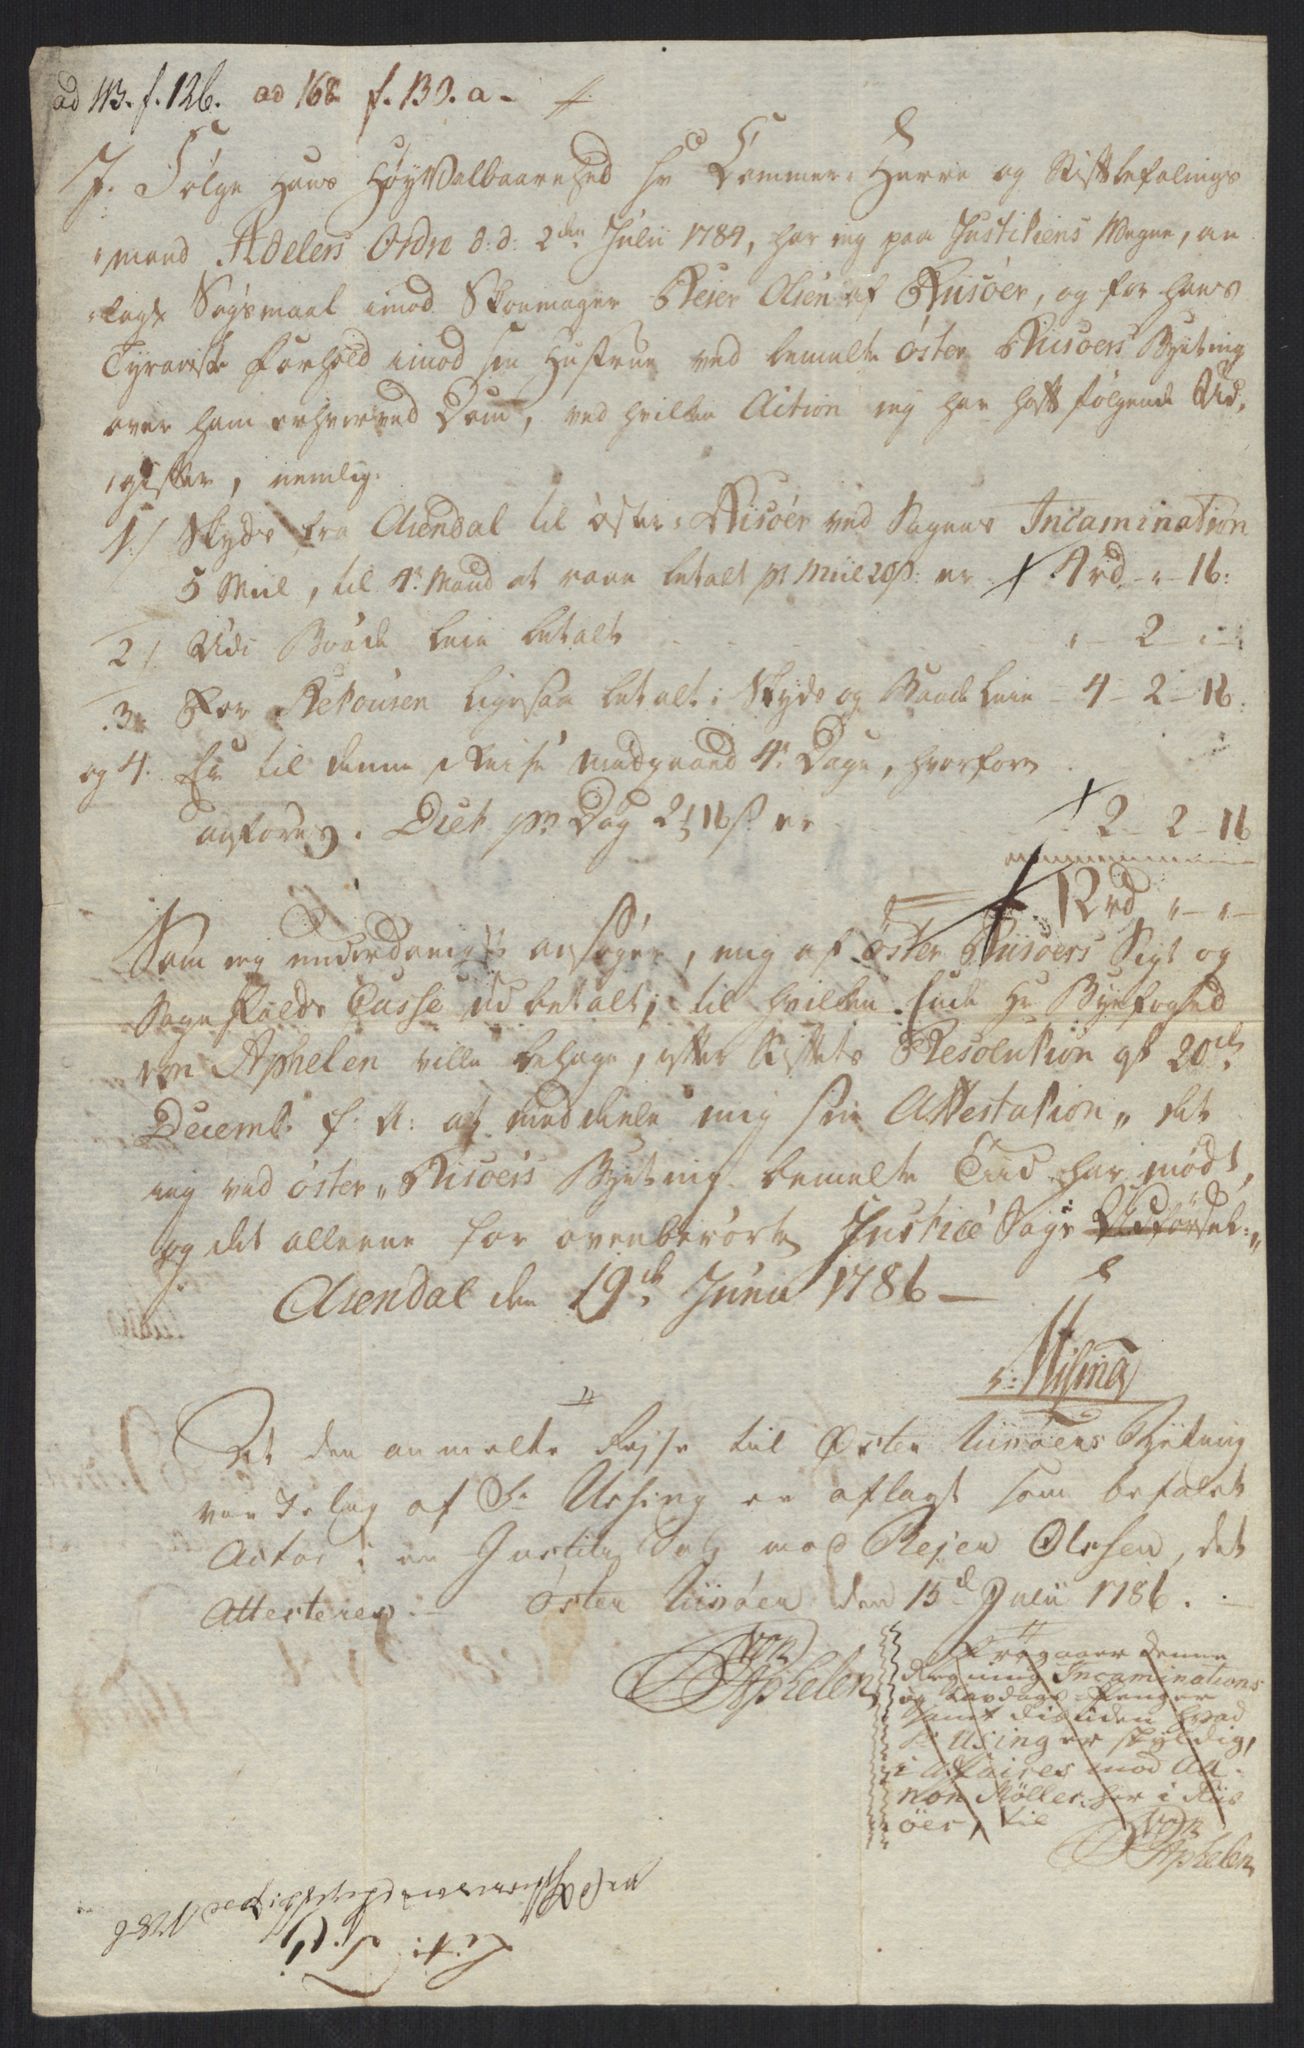 ad 113. f. 126. ad 168 f. 130. a.
I Følge Hans HøyVelbaarenhed Hr Cammer-Herre og Stiftbefalings
mand Adelers Ordre d: d: 2den Julii 1784, har ieg paa Justitiens Wegne, an
lagt Søgsmaal imod Skoemager Reier Olsen af Riisöer, og for hans
Tyraniske Forhold imod sin Hustrue ved bemelte Öster Riisöers Byeting
over ham erhvervet Dom, ved hvilken Action ieg har hatt følgende Ud,
gifter, nemlig.
1/ Skyds fra Arendal til öster-Riisöer ved Sagens Incamination
5 Miil, til 4r Mand at roere betalt pr Miil 20 s: er 4 rd - " - 16:
2/ Udi Baade leie betalt " - 2 - " -
3. For Retouren ligesaa betalt i Skyds og Baadeleie - 4 - 2 - 16.
og 4. Er til denne Reise medgaaed 4r Dage, hvorfore
anføres. Diet pr Dag 2 16 s er 2 - 2 - 16
12 rd " - " -
Som ieg underdanigst ansøger, mig af öster Riisöers Sigt og
Sagefalds Casse udbetalt; til hvilken Ende Hr Byefoged
von Aphelen ville behage, efter Stiftets Resolution af 20de
Decemb. f. A: at meddeele mig sin Attestation, det
ieg ved öster Riisöers Byeting bemelte Tiid har mødt,
og det alleene for ovenberörte Justice Sags Udförsel.
Arendal den 19de Junii 1786 -
Ussing
At den anmelte Rejse til Öster Riisöers Byeting
af Sr Ussing er aflagt som befalet
Actor i en Justits Sag mod Rejer Olssen, det
Attesteres. - Östen Riisöer den 15de Julii 1786.
von Aphelen
Fragaaer denne
Regning Incaminations
og Penger
samt desuden hvad
Sr Using er skyldig,
i Affaires mod Aa-
ron Møller her i Riis
öer, til
von Aphelen
1786